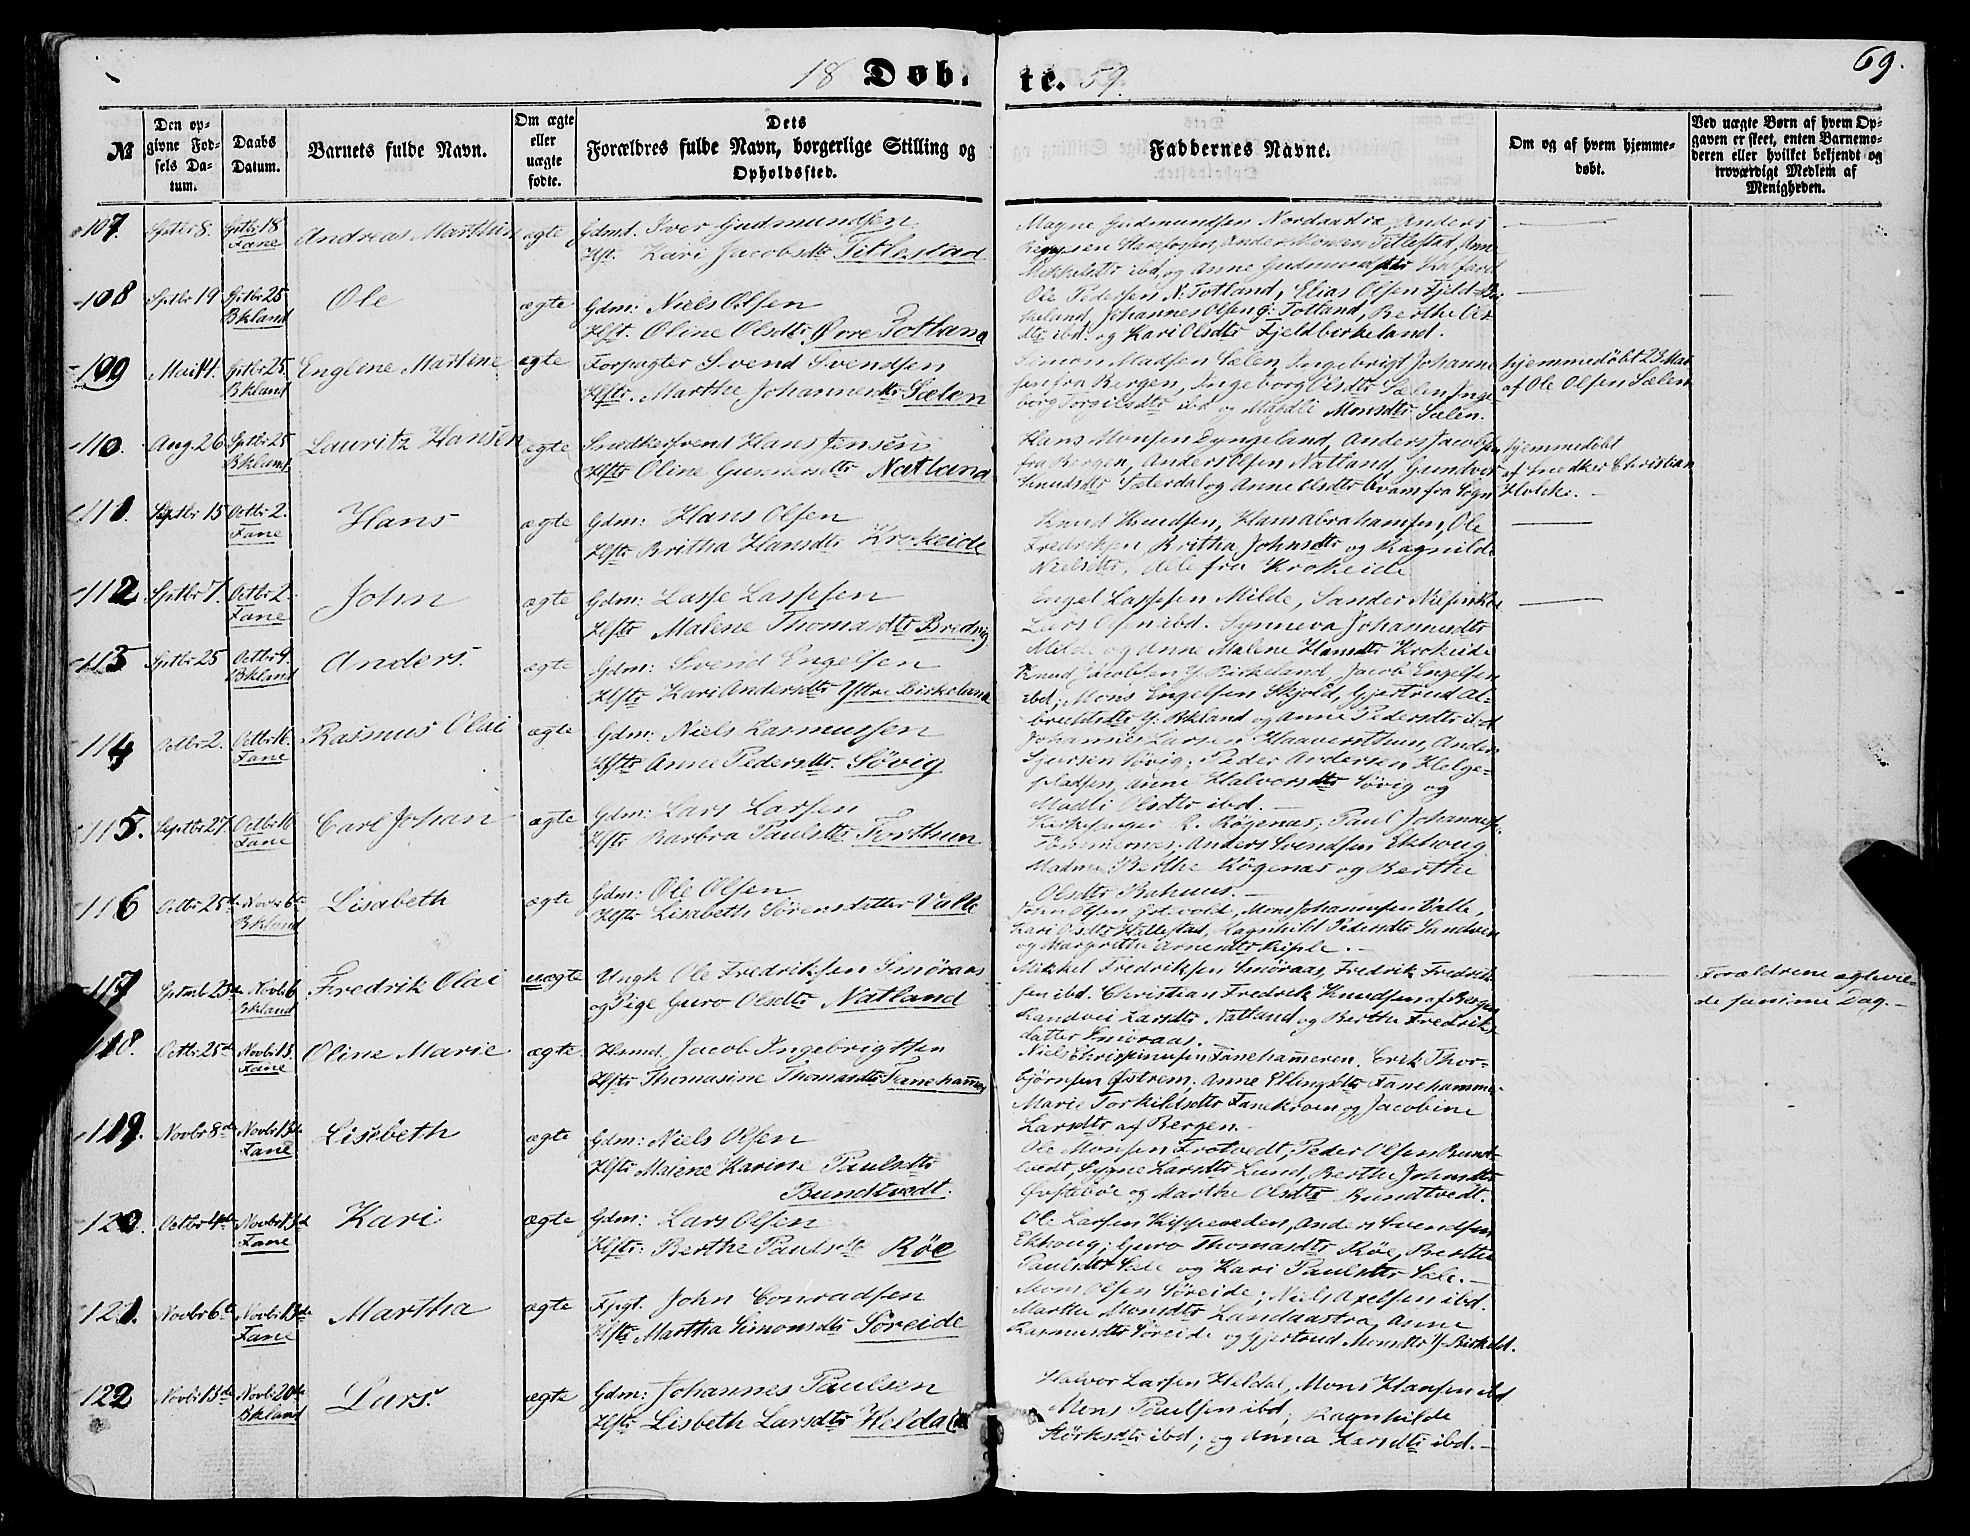 69.
18 Døb- te. 59.
№
Den opgivne Fødsels Datum.
Daabs Datum.
Barnets fulde Navn.
Om ægte eller uægte fødte.
Dets
Forældres fulde Navn, borgerlige Stilling og
Opholdssted.
Faddernes Navne.
Om og af hvem hjemmedøbt.
Ved uægte Børn af hvem Opgaven er skeet, enten Barnemoderen eller hvilket bekjendt og troværdigt Medlem af Menigheden.
107. Sptbr 8. Sptbr 18 Fane Andreas Marthin ægte Gdmd. Iver Gudmundsen
Hst. Kari Jacobsdtr Titlestad
Magne Gudmundsen Nordaastra, Anders
Anders Monsen Titlestad, Anne
Mikkelsdtr ibd, og Anne Gudmundsdtr Kalfard
108 Sptbr 19 Sptbr 25 Bkland Ole ægte Gdm: Niels Olsen
Hst. Oline Olsdtr, Øvre Totland
Ole Pedersen N. Totland, Elias Olsen Fjeld-Bir
keland, Johannes Olsen Ø: Totland, Berthe Ols
dtr ibd. og Kari Olsdtr Fjeldbirkeland.
109 Mai 14. Sptbr 25. Bkland Englene Martine ægte Forpagter Svend Svendsen
Hstr. Marthe Johannesdtr Sælen
Simon Madsen Sælen, Ingebrigt Johanne
sen fra Bergen, Ingeborg Olsdtr Sælen, Inge
borg Torgilsdtr ibd og Madli Monsdtr Sælen.
hjemmedøbt 23 Mai
af Ole Olsen Sælen
110. Aug. 26 Sptbr 25 Bkland Lauritz Hansen ægte Snedkersvend Hans Jensen
Hstr Oline Gunnersdtr Natland
Hans Monsen Dyngeland, Anders Jacobsen
fra Bergen, Anders Olsen Natland, Gundvor
Knudsdtr Sæterdal og Anne Olsdtr Qvam fra Sogn
hjemmedøbt
af Snedker Christian
Holck. -
111. Sptbr 15 Octbr 2. Fane Hans ægte Gdm: Hans Olsen
Hstr Britha Hansdtr Krokeide
Knud Knudsen, Hans Abrahamsen, Ole
Fredriksen, Britha Johnsdtr og Ragnilde
Nielsdtr, alle fra Krokeide
112 Sptbr 7. Octbr 2. Fane John ægte Gdm: Lasse Lassesen
Hstr Malene Thomasdtr Bredvig
Engel Lassesen Milde, Sander Nilsen
Lars Olsen ibd. Synneva Johannesdtr
Milde og Anne Malene Hansdtr Krokeide
113 Sptbr 25 Octbr 9. Bkland Anders. ægte Gdm: Svend Engelsen
Hstr Kari Andersdtr Yttre Birkeland
Knud Jacobsen Y. Birkeland, Jacob Engelsen
ibd; Mons Engelsen Skjold, Gjertrud Al-
brechtsdtr Y. Bkland og Anne Pedersdtr ibd
114 Octbr 2. Octbr 16. Fane Rasmus Olai ægte Gdm: Niels Rasmussen
Hstr Anne Pedersdtr. Søvig
Johannes Larsen Haaversthun, Anders
Sjursen Søvig, Peder Andersen Helge-
pladsen, Anne Halvorsdtr Søvig og
Madli Olsdtr ibd. -
115. Septbr 27. Octbr 16 Fane Carl Johan ægte Gdm: Lars Larsen
Hstr Barbra Paulsdtr Forthun
Kirkesanger R. Røgenæs, Paul Johannes
Anders Svendsen Ekhoug
Madme Berthe Røgenæs og Berthe
Olsdtr Rahuus. -
116 Octbr 25de Novbr 6te Bkland Lisabeth ægte Gdm: Ole Olsen
Hstr Lisabeth Sørensdatter Valle
John Olsen Mons Johannesen Valle,
Kari Olsdtr Hallestad, Ragnhild Pedersdtr Sandven
og Margrethe Arnesdtr Riple. -
117 Sptmb 23de Novbr 6 Bkland Fredrik Olai uægte Ungk Ole Fredriksen Smøraas
og Pige Guro Olsdtr Natland
Mikkel Fredriksen Smøraas, Fredrik Fredrik
sen ibd. Christian Fredrik Knudsen af Bergen
Randvei Larsdtr Natland og Berthe Fredriks
datter Smøraas. -
Forældrene ægtevie
de samme Dag. -
118. Octbr 25de Novbr 13. Fane Oline Marie ægte Hsmd. Jacob Ingebrigtsen
Hstr Thomasine Thomasdtr Fanehammer
Niels Chrispinussen Fanehammeren. Erik Thor-
bjørnsen Østrem. Anne Ellingsdtr Fanehamme
Marie Torkildsdtr Fanekroen og Jacobine
Larsdtr af Bergen. -
119. Novbr 8de Novbr 13de Fane Lisebeth ægte Gdm: Niels Olsen
Hstr Malene Karine Paulsdtr
Bundtvedt.
Ole Monsen Frotvedt, Peder Olsen Bund-
tvedt, Sygne Larsdtr Lund, Berthe Johansdtr
Øvstebøe og Marthe Olsdtr Bundtvedt.
120. Octbr 4de Novbr 13de Fane Kari ægte Gdm: Lars Olsen
Hstr: Berthe Paulsdtr Røe
Ole Larsen Kippeveden, Anders Svendsen
Ekhoug; Guro Thomasdtr Røe, Berthe
Paulsdtr Sæle og Kari Paulsdtr Sæle. -
121. Novbr 6te Novbr 13de Fane Martha ægte Fpgt. John Conradsen
Hstr Martha Simonsdtr Søreide
Mons Olsen Søreide; Niels Axelsen ibd.
Marthe Monsdtr Landaastræ, Anne
Rasmusdtr Søreide og Gjertrud Monsdtr Y. Birkeld.
122 Novbr 13de Novbr 20de Bkland Lars. ægte Gdm: Johannes Paulsen
Hstr Lisbeth Larsdtr Heldal
Halvor Larsen Heldal, Mons Hansen ibd
Mons Paulsen ibd; Ragnhilde
Størksdtr ibd; og Anna Larsdtr ibd. -